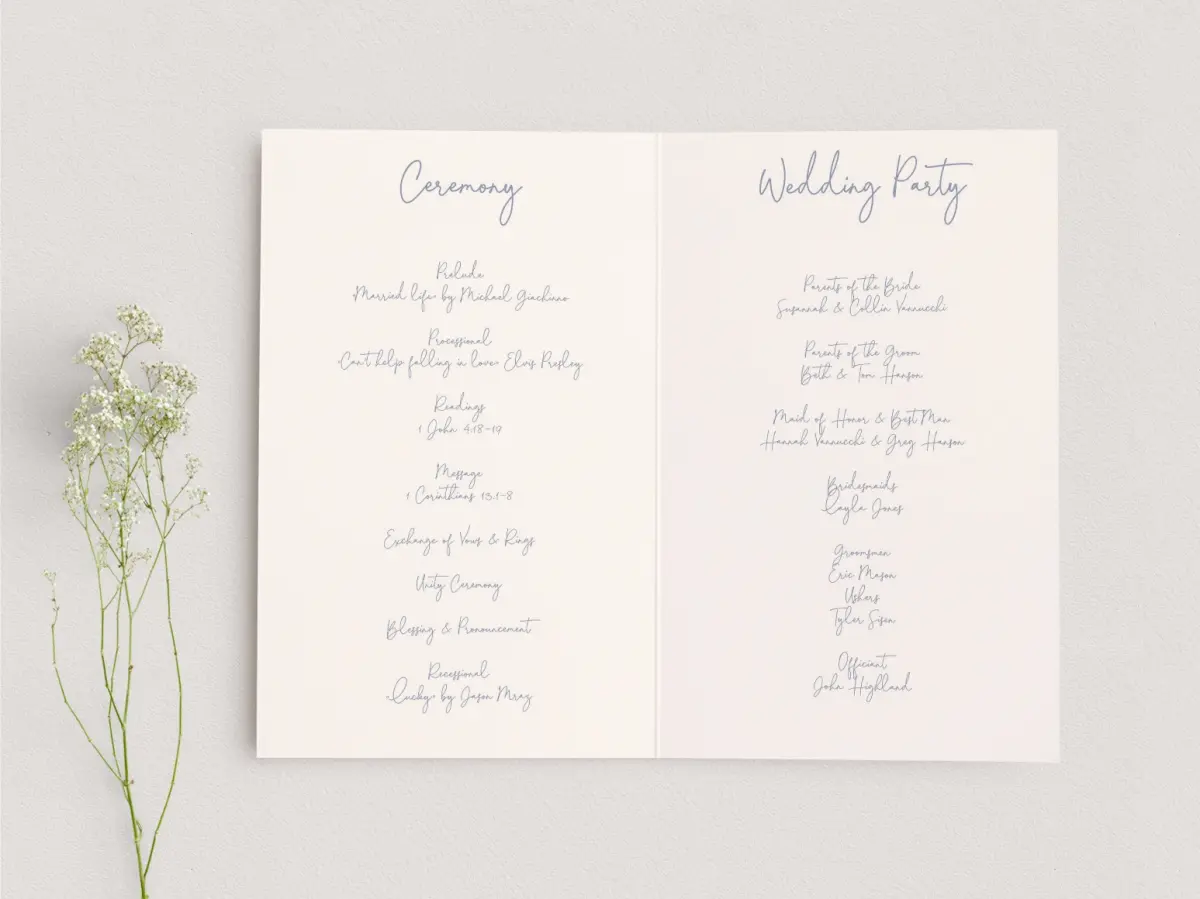 Ceremony
Prelude
"Married life" by Michael Giachinno
Processional
"Can't help falling in love" Elvis Presley
Readings
1 John 4:18-19
Message
1 Corinthians 13:1-8
Exchange of Vows & Rings
Unity Ceremony
Blessing & Pronouncement
Recessional
"Lucky" by Jason Mraz
Wedding Party
Parents of the Bride
Susannah & Collin Vannucchi
Parents of the Groom
Beth & Tom Hanson
Maid of Honor & Best Man
Hannah Vannucchi & Greg Hanson
Bridesmaids
Layla Jones
Groomsmen
Eric Mason
Ushers
Tyler Sison
Officiant
John Highland